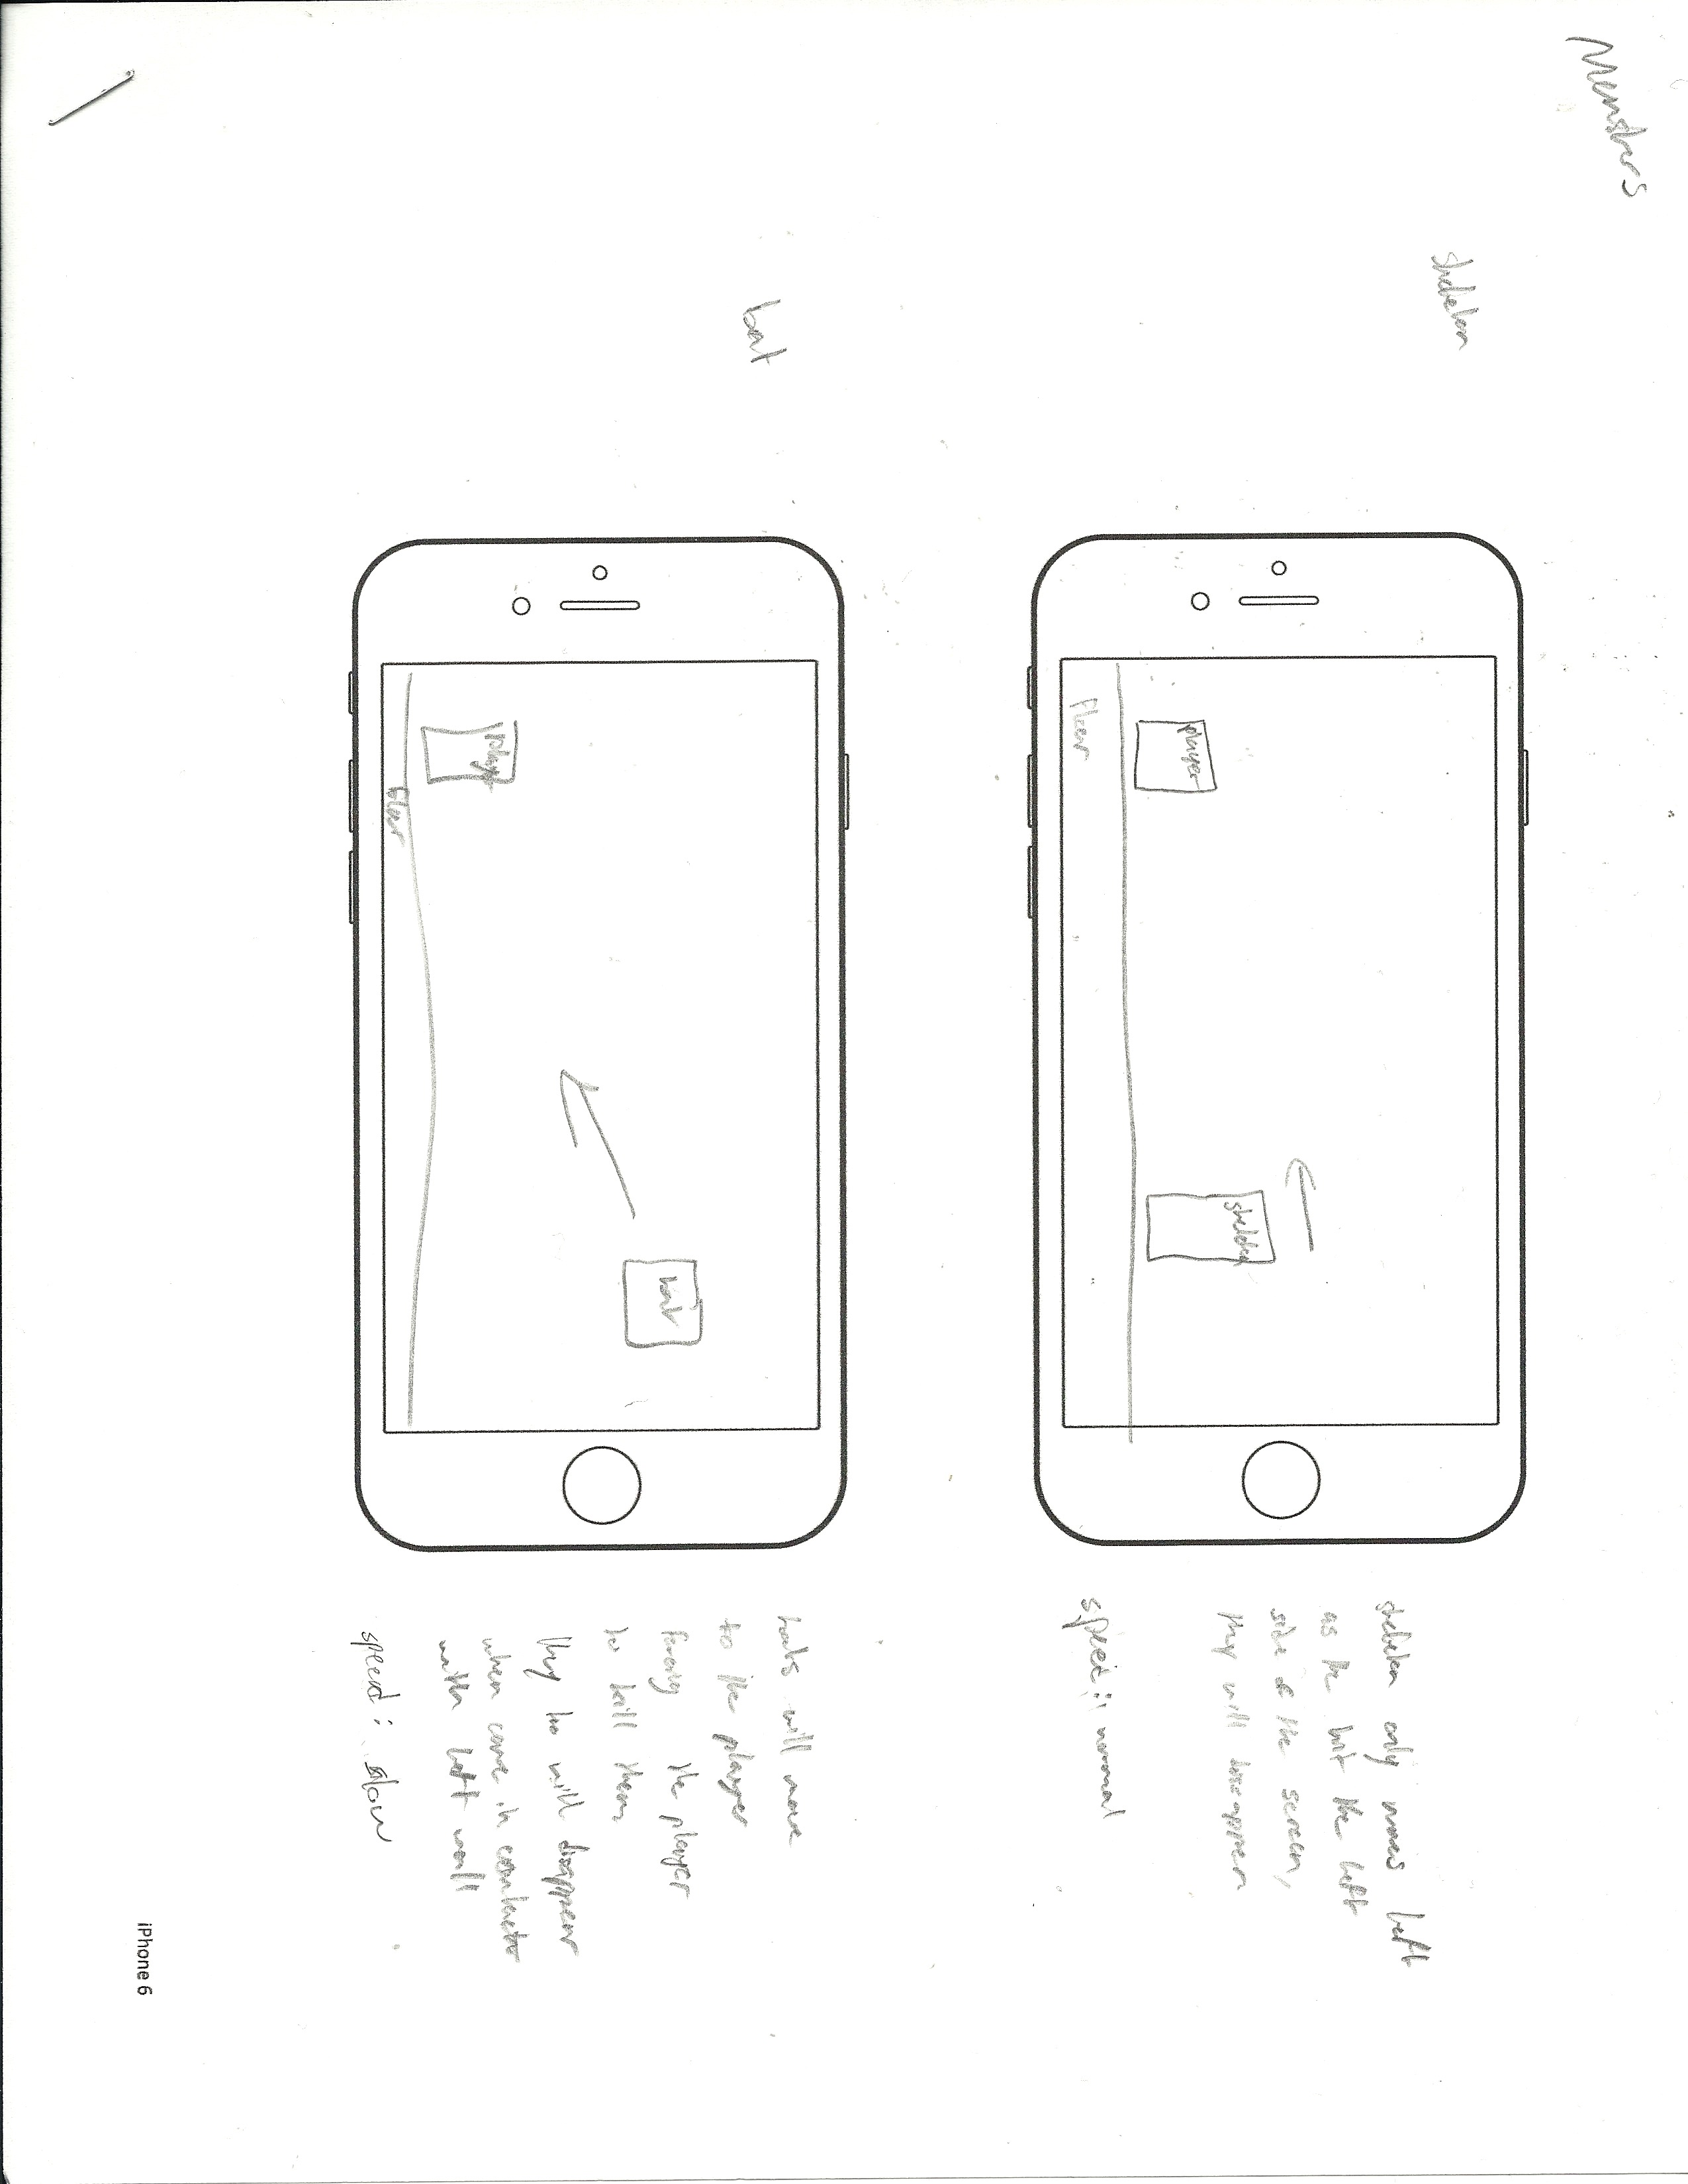 Monsters
skeleton
player
skeleton
Floor
skeleton only moves left
as the hit the left
side of the screen,
they will disappear
speed: normal
bat
player
bat
Floor
bats will move
to the player
forcing the player
to kill them
they to will disappear
when come in contact
with left wall
speed: slow
iPhone 6